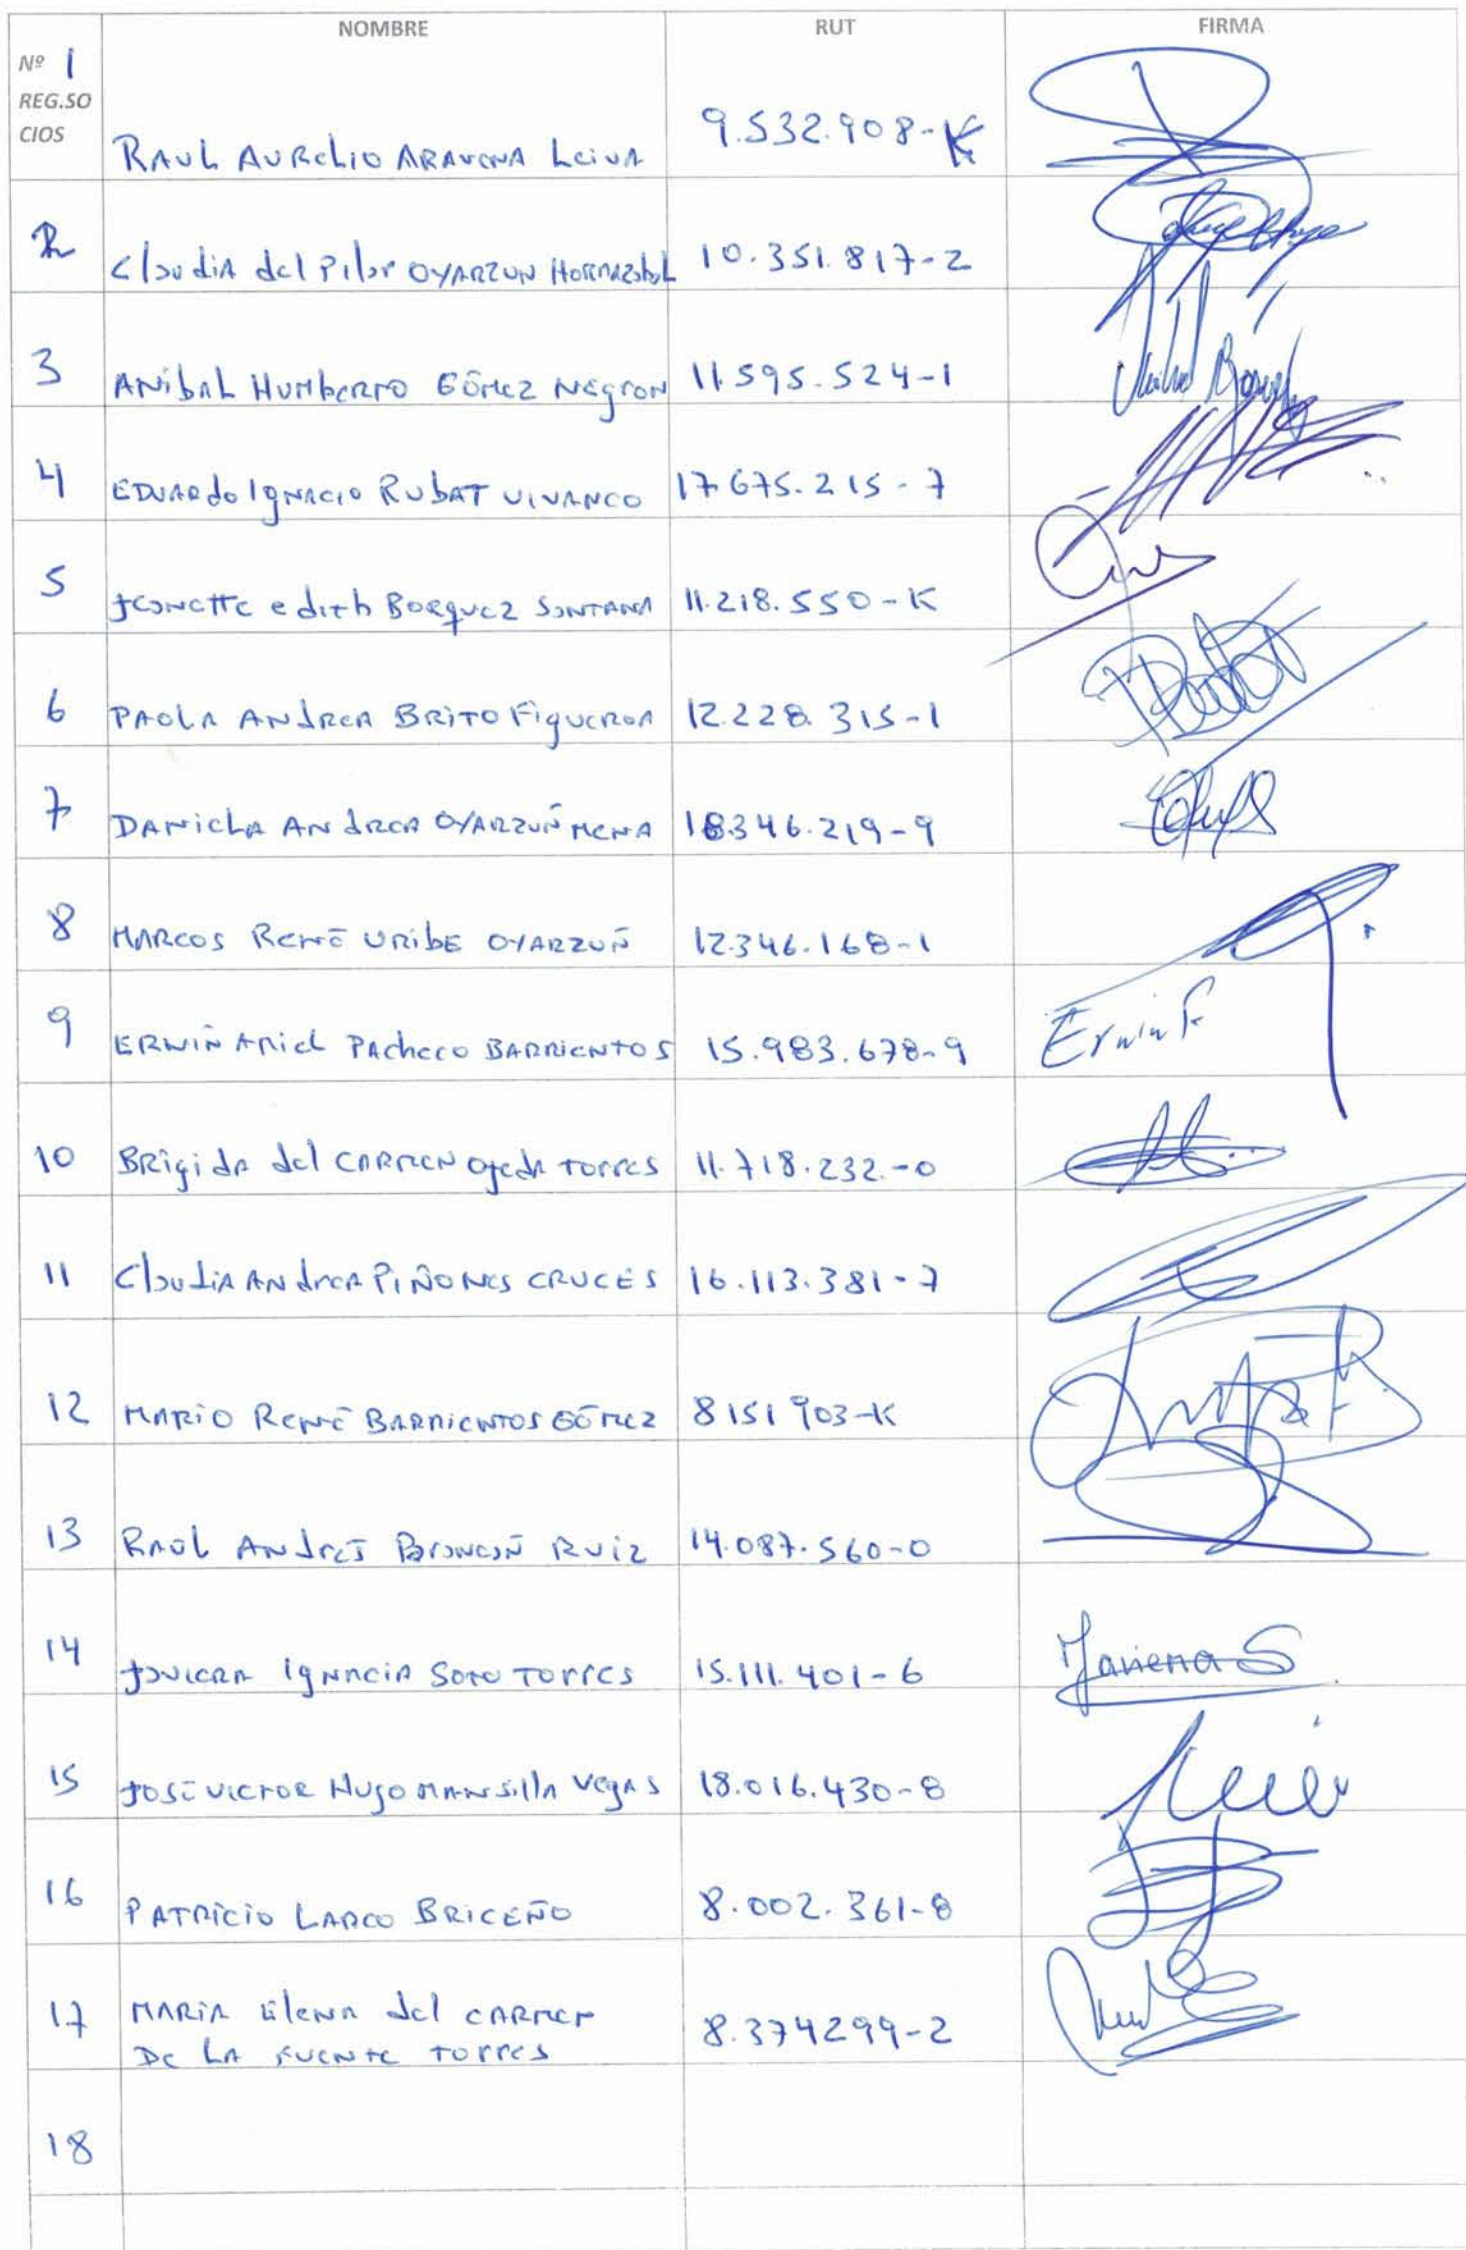 NOMBRE RUT FIRMA
Nº 1
REG.SO
CIOS
RAUL AURELIO ARAVENA LEIVA 9.532.908-K
2 Claudia del Pilar OYARZUN HORMAZabaL 10.351.817-2
3 ANIBAL HUMBERTO GÓMEZ NEGRON 11.595.524-1
4 EDUARDO IGNACIO RUBAT VIVANCO 17.675.215-7
5 JEANETTE edith BORQUEZ SANTANA 11.218.550-K
6 PAOLA ANDREA BRITO FIGUEROA 12.228.315-1
7 DANIELA ANDREA OYARZUÑ MENA 18.346.219-9
8 MARCOS RENÉ URIBE OYARZUÑ 12.346.168-1
9 ERWIÑ ARIEL PACHECO BARRIENTOS 15.983.678-9 Erwin P
10 BRIGIDA del CARMEN OJEDA TORRES 11.718.232-0
11 Claudia ANDREA PIÑONES CRUCES 16.113.381-7
12 MARIO RENÉ BARRIENTOS GÓMEZ 8151903-K
13 RAÚL ANDRÉS RUIZ 14.087.560-0
14 JAVIERA IGNACIA SOTO TORRES 15.111.401-6 Javiera S
15 JOSÉ VICTOR HUGO MANSILLA VEGAS 18.016.430-8
16 PATRICIO LARCO BRICEÑO 8.002.361-8
17 MARIA ELENA del CARMEN
DE LA FUENTE TORRES 8.374299-2
18